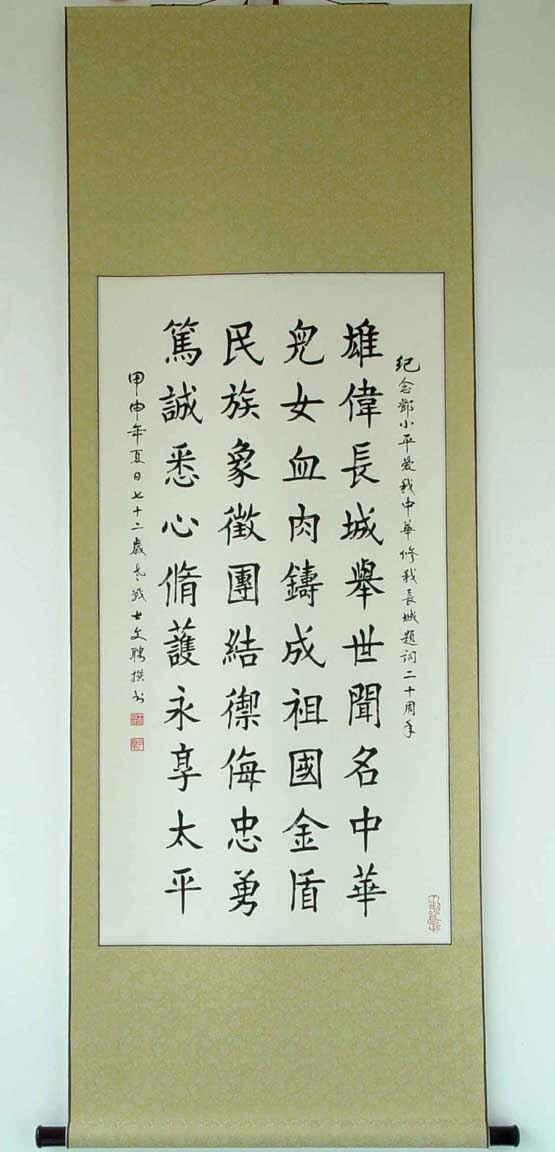 紀念鄧小平愛我中華修我長城題詞二十周年
雄偉長城舉世聞名中華
兒女血肉鑄成祖國金盾
民族象徵團結禦侮忠勇
篤誠悉心脩護永享太平
甲申年夏日七十二歲老戰士文聘撰书